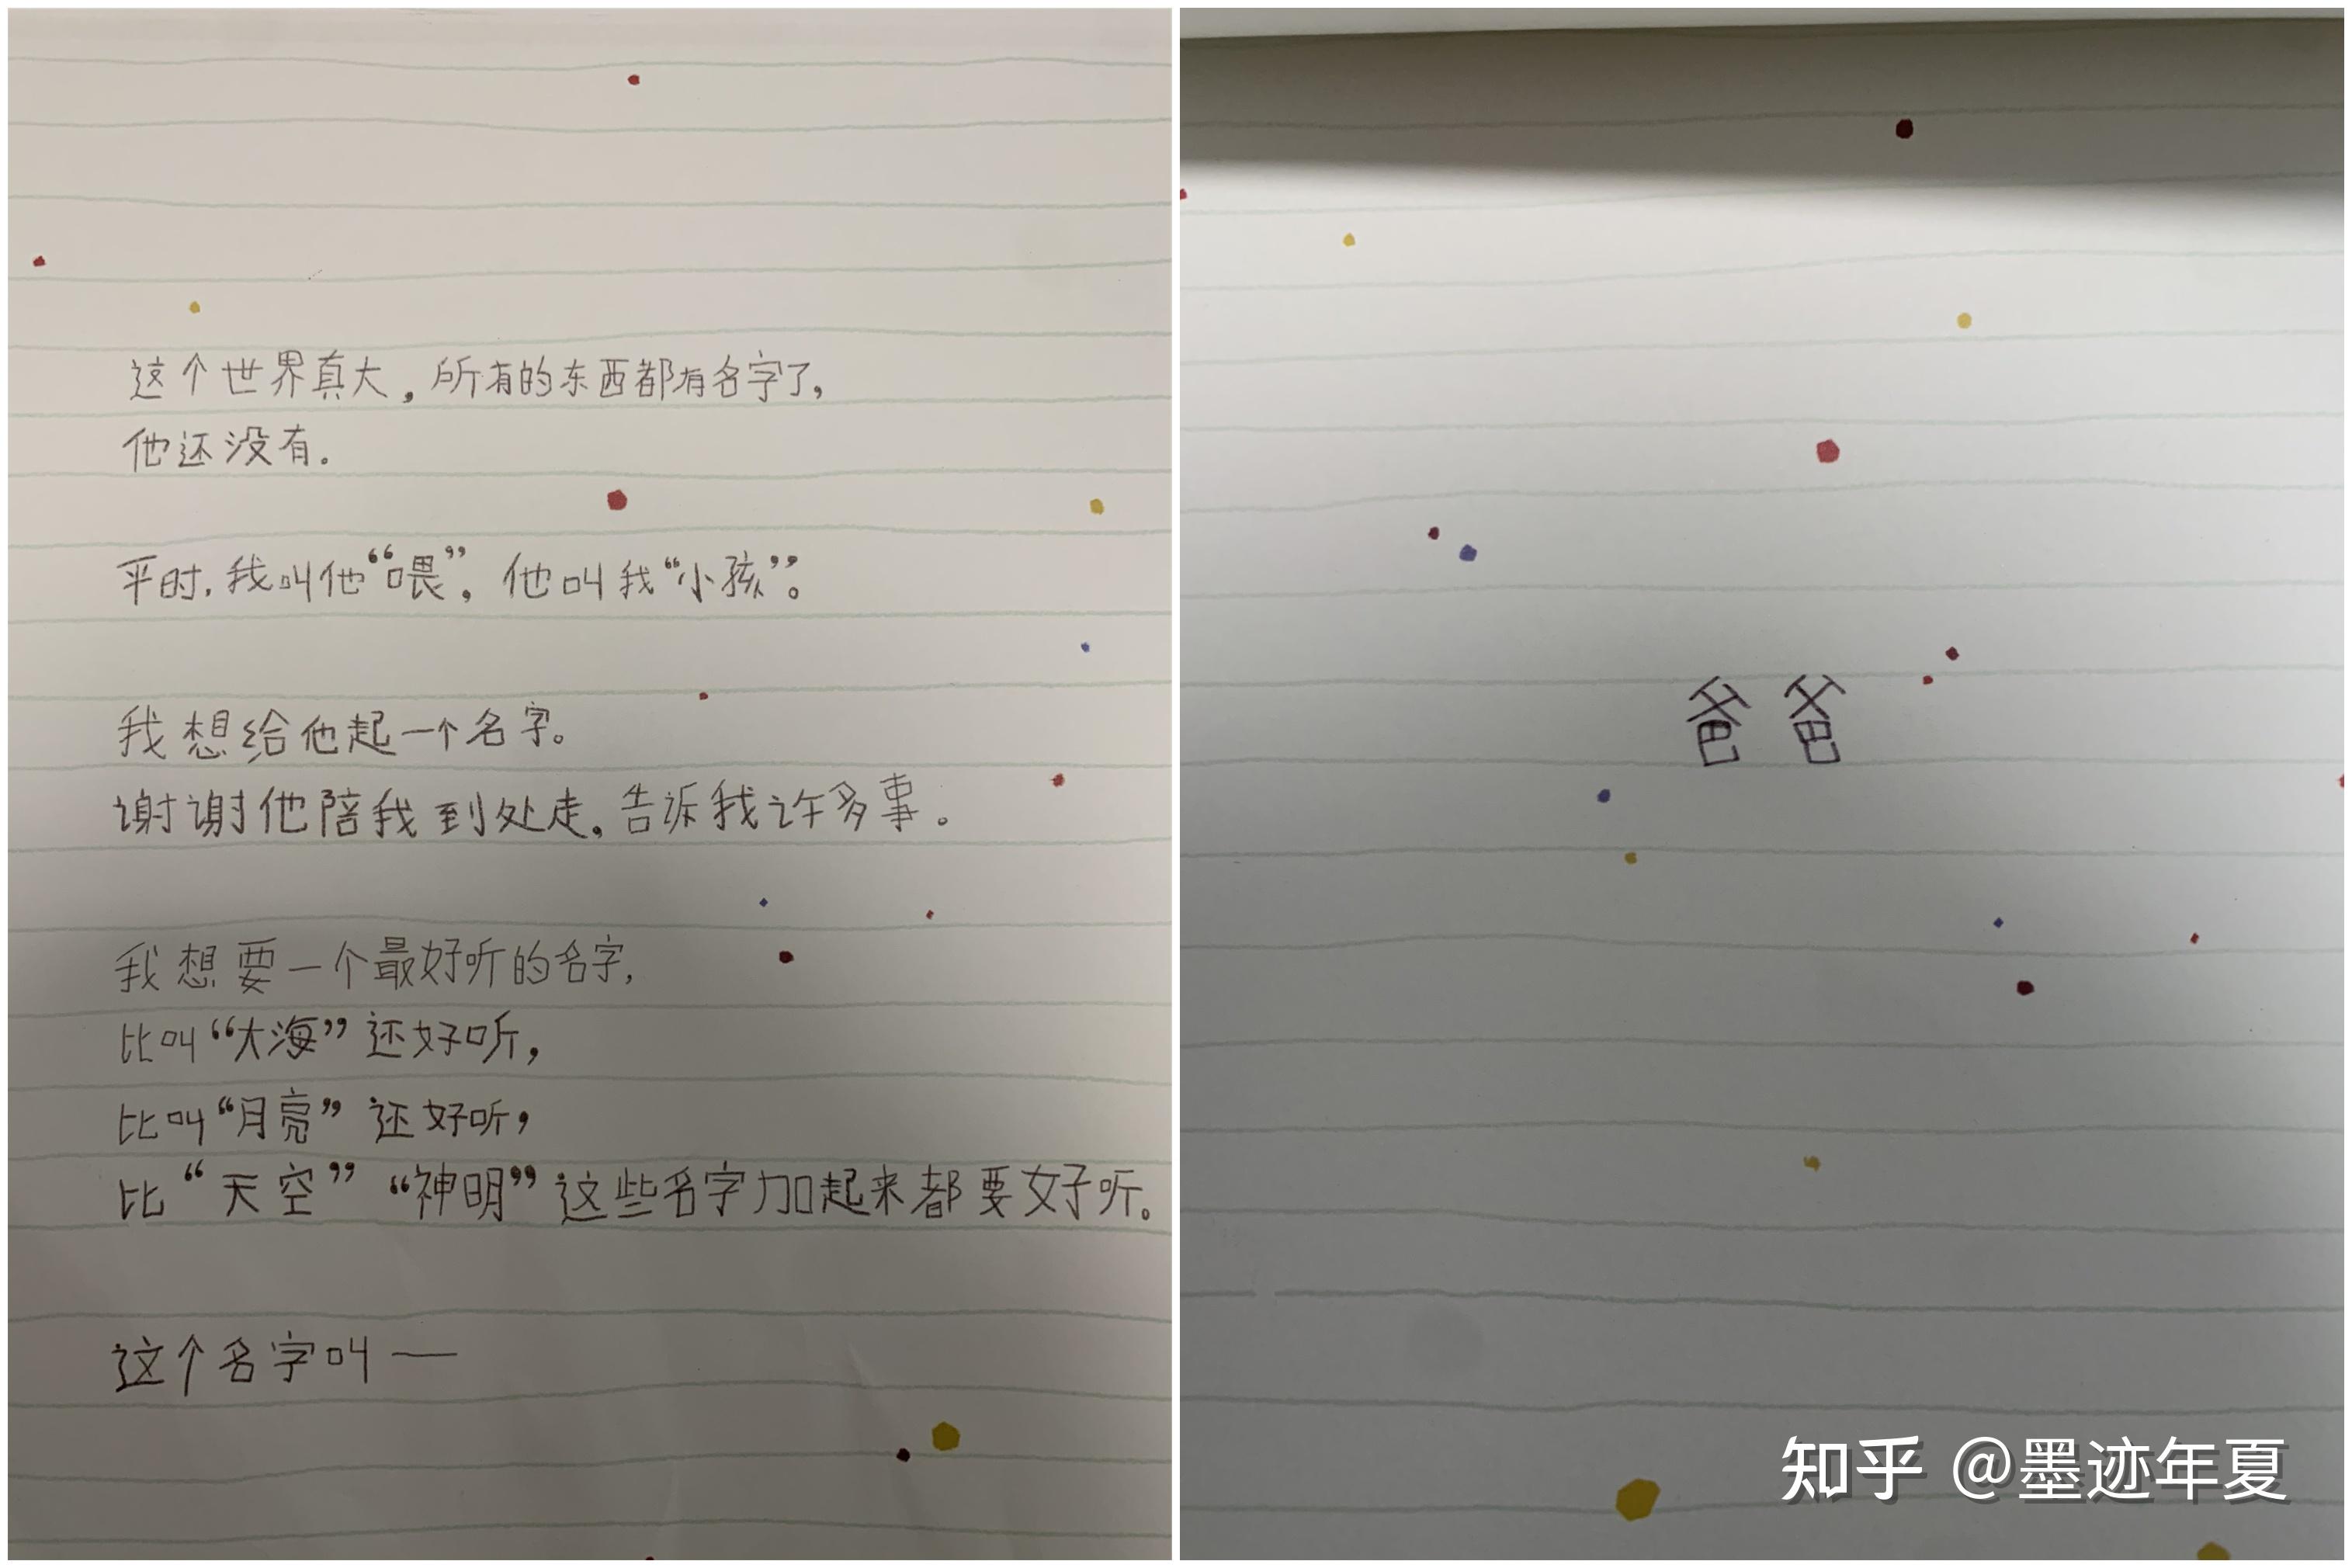 这个世界真大，所有的东西都有名字了，
他还没有。
平时，我叫他“喂”，他叫我“小孩”。
我想给他起一个名字。
谢谢他陪我到处走，告诉我许多事。
我想要一个最好听的名字，
比叫“大海”还好听，
比叫“月亮”还好听，
比“天空”“神明”这些名字加起来都要好听。
这个名字叫——
爸爸
知乎 @墨迹年夏